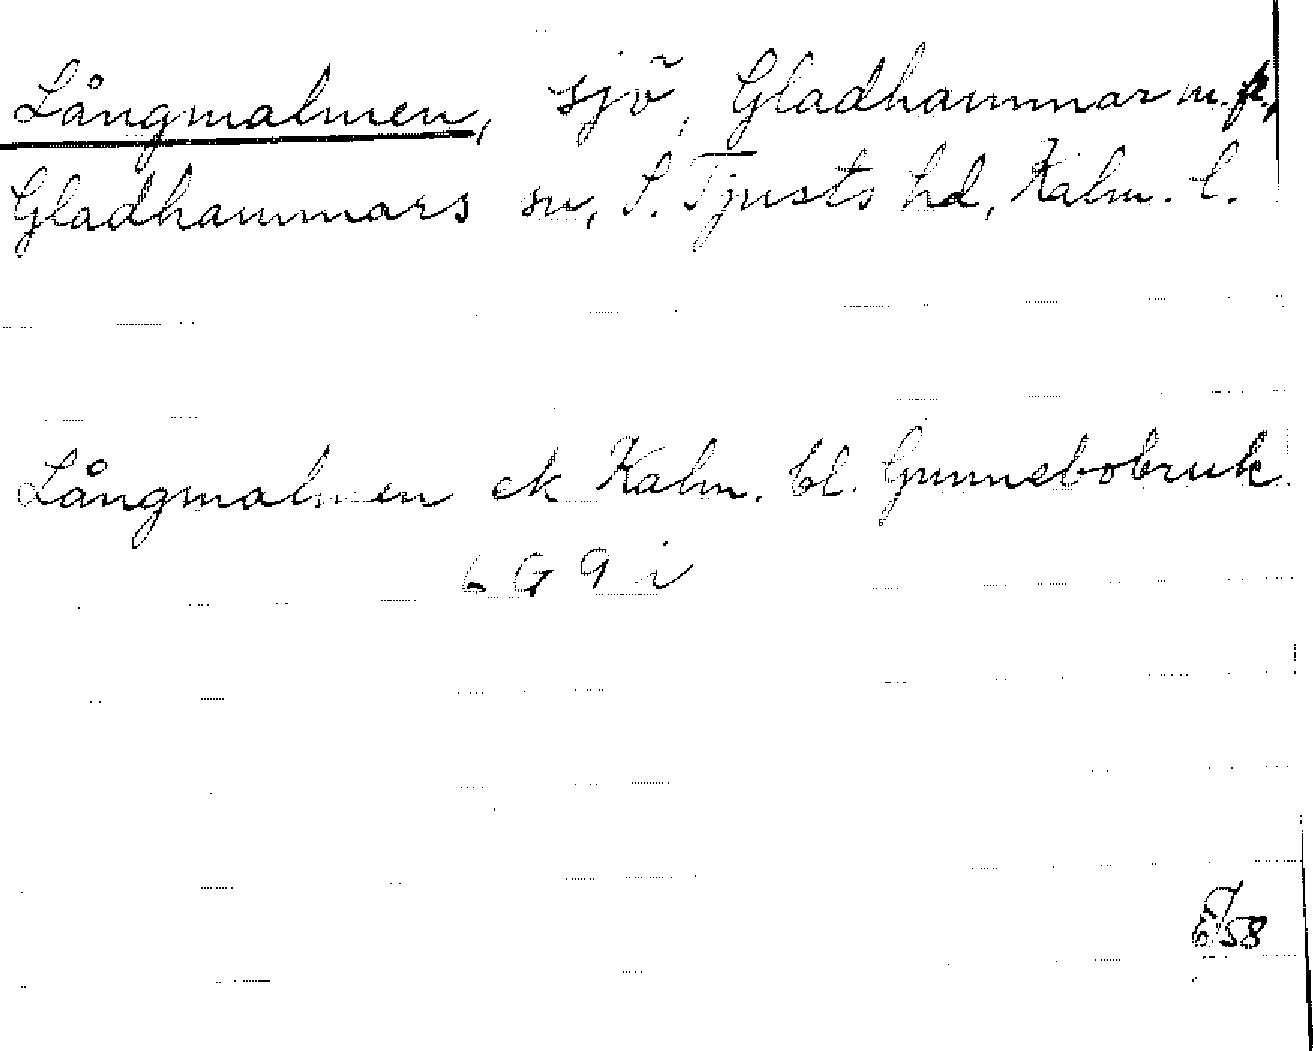 Långmalmen, sjö, Gladhammar m.fl.,
Gladhammars sn, S. Tjusts hd, Kalm. l.
Långmalmen ek Kalm. bl. Gunnebobruk
6 G 9 i
58